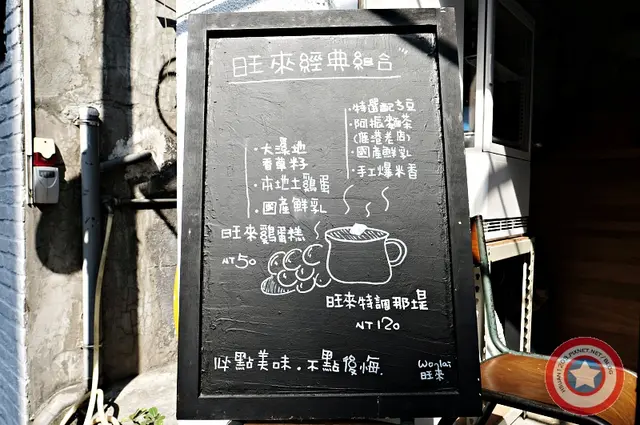 旺來經典組合
・特選配方豆
・阿振麵茶
(鹿港老店)
・國產鮮乳
・手工爆米香
・大溪地
香草籽
・本地土雞蛋
・國產鮮乳
旺來雞蛋糕
NT50
旺來特調那堤
NT120
必點美味.不點後悔.
Wonlai
旺來